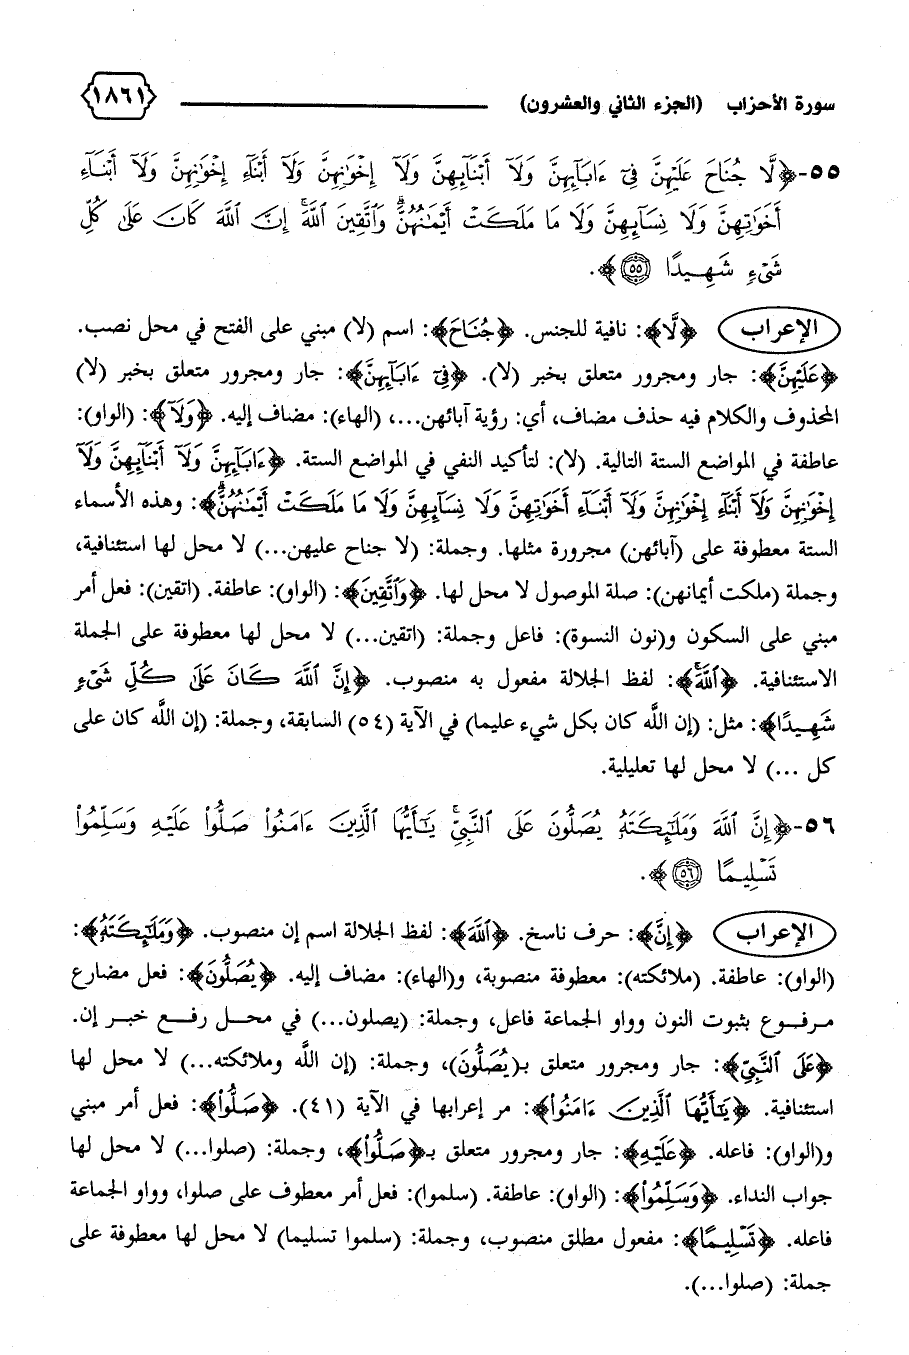 سورة الأحزاب (الجزء الثاني والعشرون) ١٨٦١
٥٥-﴿لَّا جُنَاحَ عَلَيْهِنَّ فِىٓ ءَابَآئِهِنَّ وَلَآ أَبْنَآئِهِنَّ وَلَآ إِخْوَٰنِهِنَّ وَلَآ أَبْنَآءِ إِخْوَٰنِهِنَّ وَلَآ أَبْنَآءِ
أَخَوَٰتِهِنَّ وَلَا نِسَآئِهِنَّ وَلَا مَا مَلَكَتْ أَيْمَٰنُهُنَّ ۗ وَٱتَّقِينَ ٱللَّهَ ۚ إِنَّ ٱللَّهَ كَانَ عَلَىٰ كُلِّ
شَىْءٍ شَهِيدًا ٥٥﴾.
الإعراب ﴿لَّا﴾: نافية للجنس. ﴿جُنَاحَ﴾: اسم (لا) مبني على الفتح في محل نصب.
﴿عَلَيْهِنَّ﴾: جار ومجرور متعلق بخبر (لا). ﴿فِىٓ ءَابَآئِهِنَّ﴾: جار ومجرور متعلق بخبر (لا)
المحذوف والكلام فيه حذف مضاف، أي: رؤية آبائهن...، (الهاء): مضاف إليه. ﴿وَلَآ﴾: (الواو):
عاطفة في المواضع الستة التالية. (لا): لتأكيد النفي في المواضع الستة. ﴿ءَابَآئِهِنَّ وَلَآ أَبْنَآئِهِنَّ وَلَآ
إِخْوَٰنِهِنَّ وَلَآ أَبْنَآءِ إِخْوَٰنِهِنَّ وَلَآ أَبْنَآءِ أَخَوَٰتِهِنَّ وَلَا نِسَآئِهِنَّ وَلَا مَا مَلَكَتْ أَيْمَٰنُهُنَّ ۗ﴾: وهذه الأسماء
الستة معطوفة على (آبائهن) مجرورة مثلها. وجملة: (لا جناح عليهن...) لا محل لها استئنافية،
وجملة (ملكت أيمانهن): صلة الموصول لا محل لها. ﴿وَٱتَّقِينَ﴾: (الواو): عاطفة. (اتقين): فعل أمر
مبني على السكون و(نون النسوة): فاعل وجملة: (اتقين...) لا محل لها معطوفة على الجملة
الاستئنافية. ﴿ٱللَّهَ ۚ﴾: لفظ الجلالة مفعول به منصوب. ﴿إِنَّ ٱللَّهَ كَانَ عَلَىٰ كُلِّ شَىْءٍ
شَهِيدًا﴾: مثل: (إن اللَّه كان بكل شيء عليما) في الآية (٥٤) السابقة، وجملة: (إن اللَّه كان على
كل ...) لا محل لها تعليلية.
٥٦-﴿إِنَّ ٱللَّهَ وَمَلَٰٓئِكَتَهُۥ يُصَلُّونَ عَلَى ٱلنَّبِىِّ ۚ يَٰٓأَيُّهَا ٱلَّذِينَ ءَامَنُوا۟ صَلُّوا۟ عَلَيْهِ وَسَلِّمُوا۟
تَسْلِيمًا ٥٦﴾.
الإعراب ﴿إِنَّ﴾: حرف ناسخ. ﴿ٱللَّهَ﴾: لفظ الجلالة اسم إن منصوب. ﴿وَمَلَٰٓئِكَتَهُۥ﴾:
(الواو): عاطفة. (ملائكته): معطوفة منصوبة، و(الهاء): مضاف إليه. ﴿يُصَلُّونَ﴾: فعل مضارع
مرفوع بثبوت النون وواو الجماعة فاعل، وجملة: (يصلون...) في محل رفع خبر إن.
﴿عَلَى ٱلنَّبِىِّ﴾: جار ومجرور متعلق بـ(يُصَلُّونَ)، وجملة: (إن الله وملائكته...) لا محل لها
استئنافية. ﴿يَٰٓأَيُّهَا ٱلَّذِينَ ءَامَنُوا۟﴾: مر إعرابها في الآية (٤١). ﴿صَلُّوا۟﴾: فعل أمر مبني
و(الواو): فاعله. ﴿عَلَيْهِ﴾: جار ومجرور متعلق بـ﴿صَلُّوا۟﴾، وجملة: (صلوا...) لا محل لها
جواب النداء. ﴿وَسَلِّمُوا۟﴾: (الواو): عاطفة. (سلموا): فعل أمر معطوف على صلوا، وواو الجماعة
فاعله. ﴿تَسْلِيمًا﴾: مفعول مطلق منصوب، وجملة: (سلموا تسليما) لا محل لها معطوفة على
جملة: (صلوا...).